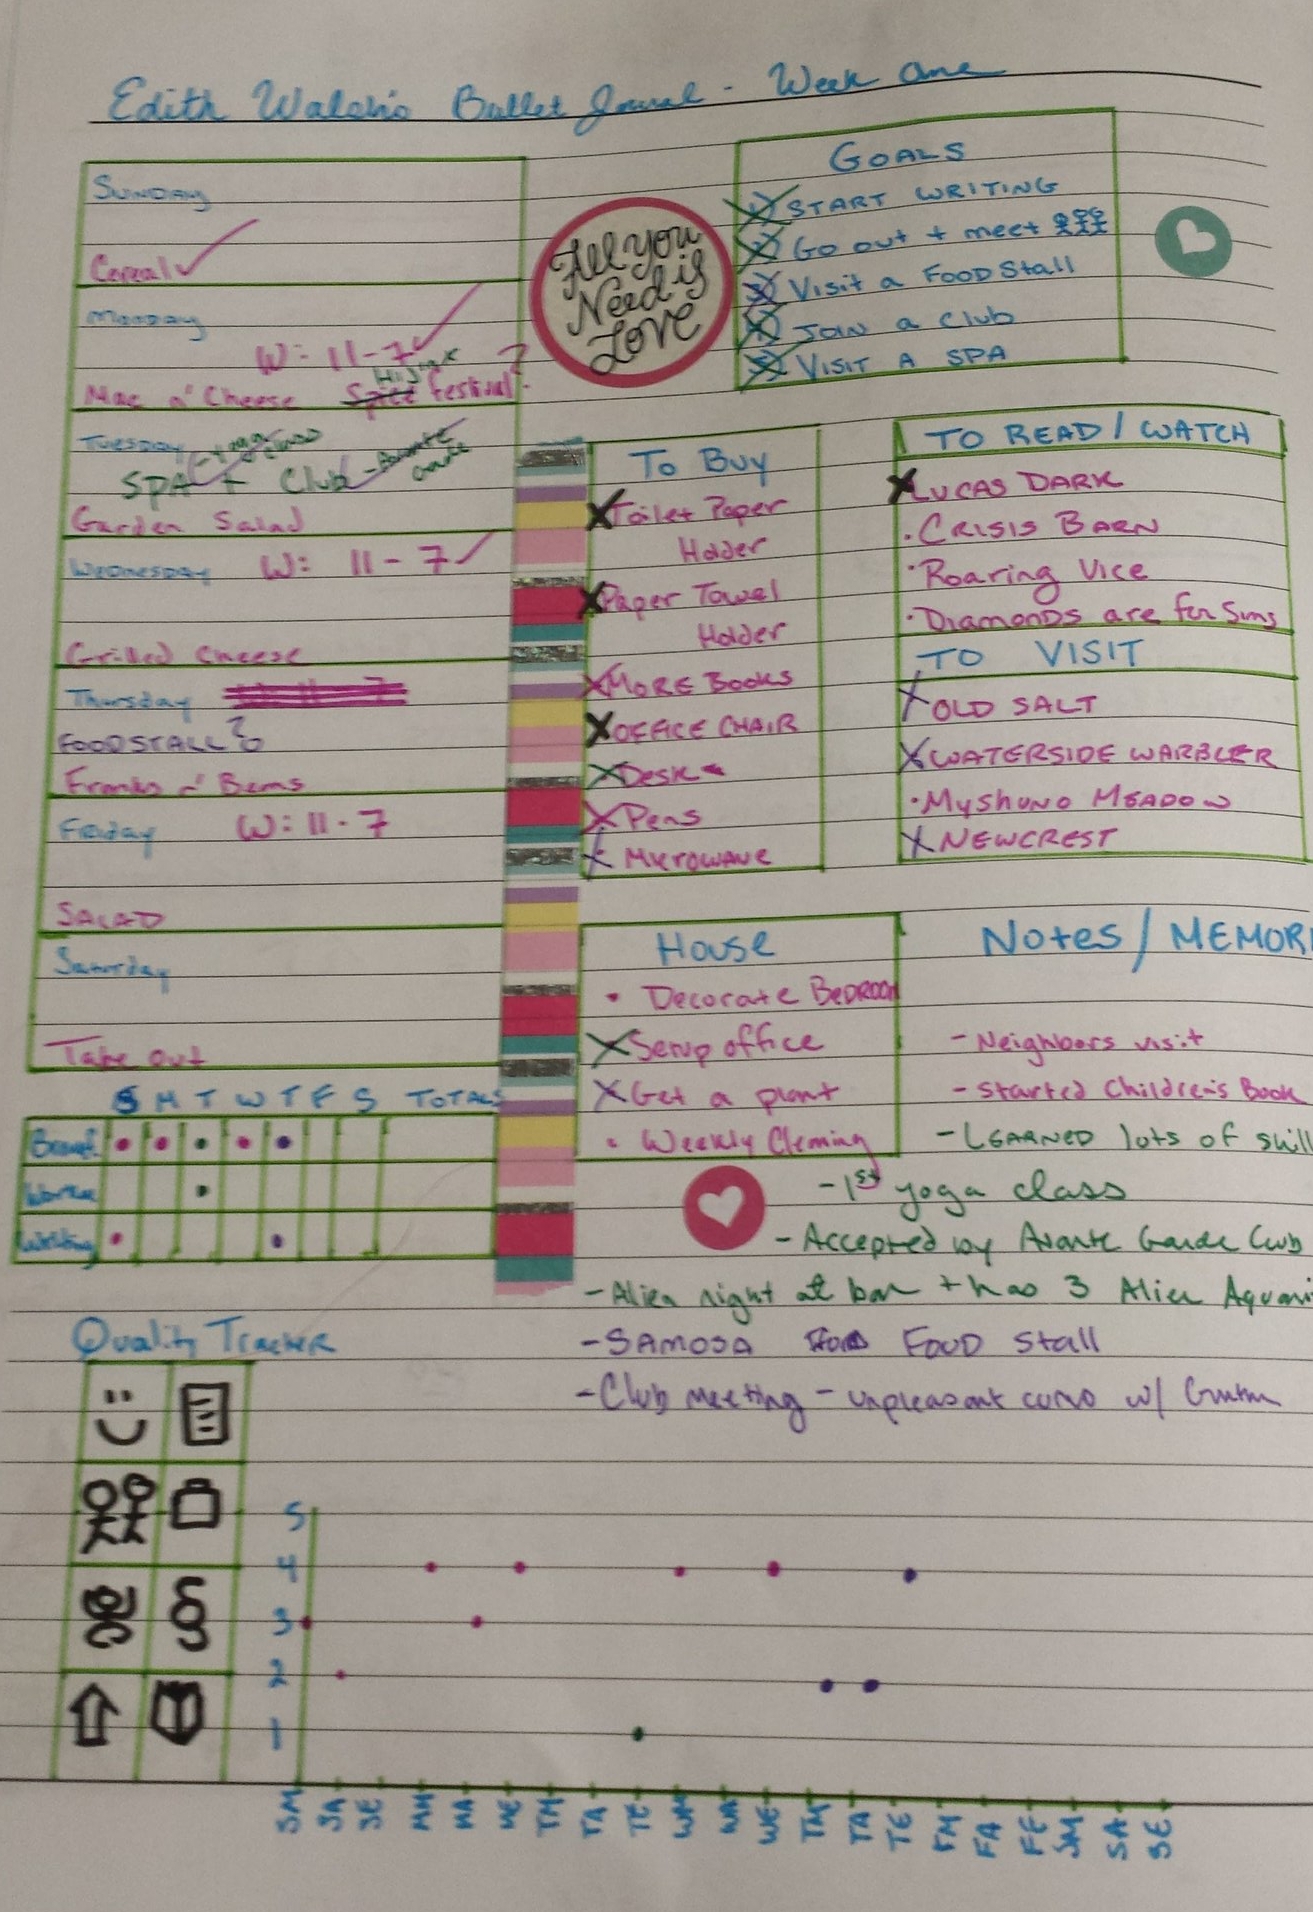 Edith Walsh's Bullet Journal - Week One
SUNDAY
Cereal
Monday
W: 11-7
HiJink
Mac n' Cheese Spice festival?
Tuesday - Yoga class
SPA + Club - Avante Garde
Garden Salad
Wednesday W: 11-7
Grilled Cheese
Thursday
FOODSTALL?
Franks n' Beans
Friday W: 11-7
SALAD
Saturday
Take out
All you
Need is
Love
GOALS
1) START WRITING
2) Go out + meet
3) Visit a Food Stall
4) JOIN a Club
5) VISIT A SPA
To Buy
Toilet Paper
Holder
Paper Towel
Holder
MORE Books
OFFICE CHAIR
Desk
Pens
Microwave
TO READ / WATCH
LUCAS DARK
• CRISIS BARN
• Roaring Vice
• Diamonds are for Sims
TO VISIT
OLD SALT
WATERSIDE WARBLER
• MYSHUNO MEADOW
NEWCREST
House
• Decorate BEDROOM
Setup office
Get a plant
• Weekly Cleaning
Notes / MEMORI
- Neighbors visit
- Started Children's Book
- LEARNED lots of skill
- 1st yoga class
- Accepted by Avante Garde Club
- Alien night at bar + has 3 Alien Aquari
- SAMOSA FOOD Stall
- Club meeting - unpleasant convo w/
S M T W T F S TOTALS
Writing
Quality Tracker
5
4
3
2
1
SM SA SE MM MA ME TM TA TE WM WA WE TM TA TE FM FA FE SM SA SE